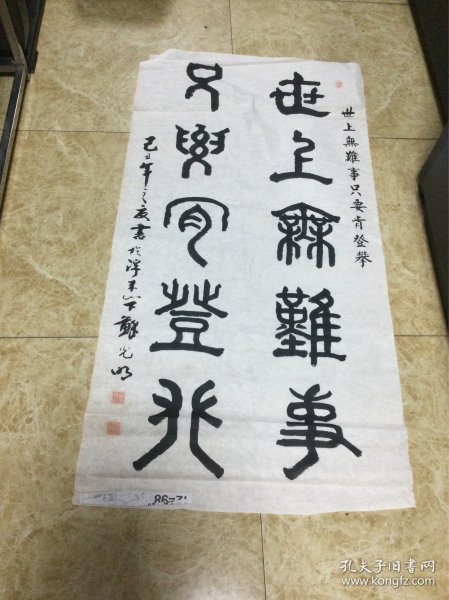 世上無難事
只要肯登攀
世上無難事只要肯登攀
己丑年之夏書於浮来山下蘇光明
孔夫子旧书网
www.kongfz.com